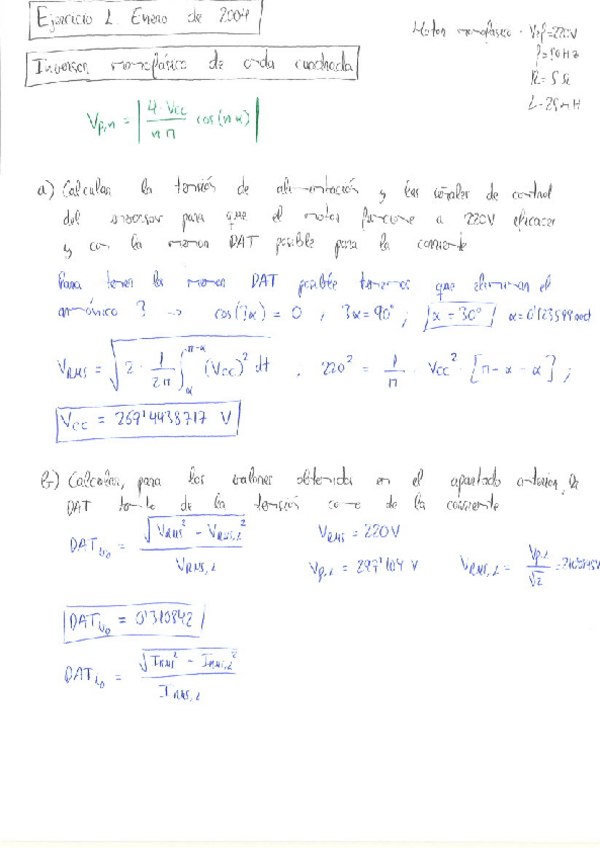 Ejercicio 1. Enero de 2004
Motor monofásico · Vef=220V
f=50Hz
R=5Ω
L=25mH
Inversor monofásico de onda cuadrada
Vp,n = |4·Vcc / nπ cos(nα)|
a) Calcular la tensión de alimentación y las señales de control
del inversor para que el motor funcione a 220V eficaces
y con la menor DAT posible para la corriente
Para tener la menor DAT posible tenemos que eliminar el
armónico 3 → cos(3α) = 0 , 3α=90° ; α = 30° α=0'523599 rad
VRMS = √(2 · 1/2π ∫α^π-α (Vcc)² dt) , 220² = 1/π · Vcc² · [π-α-α] ;
Vcc = 269'4438717 V
b) Calcular, para los valores obtenidos en el apartado anterior, la
DAT tanto de la tensión como de la corriente
DATVo = √(VRMS² - VRMS,1²) / VRMS,1
VRMS = 220V
Vp,1 = 297'104 V
VRMS,1 = Vp,1/√2
DATVo = 0'310842
DATio = √(IRMS² - IRMS,1²) / IRMS,1